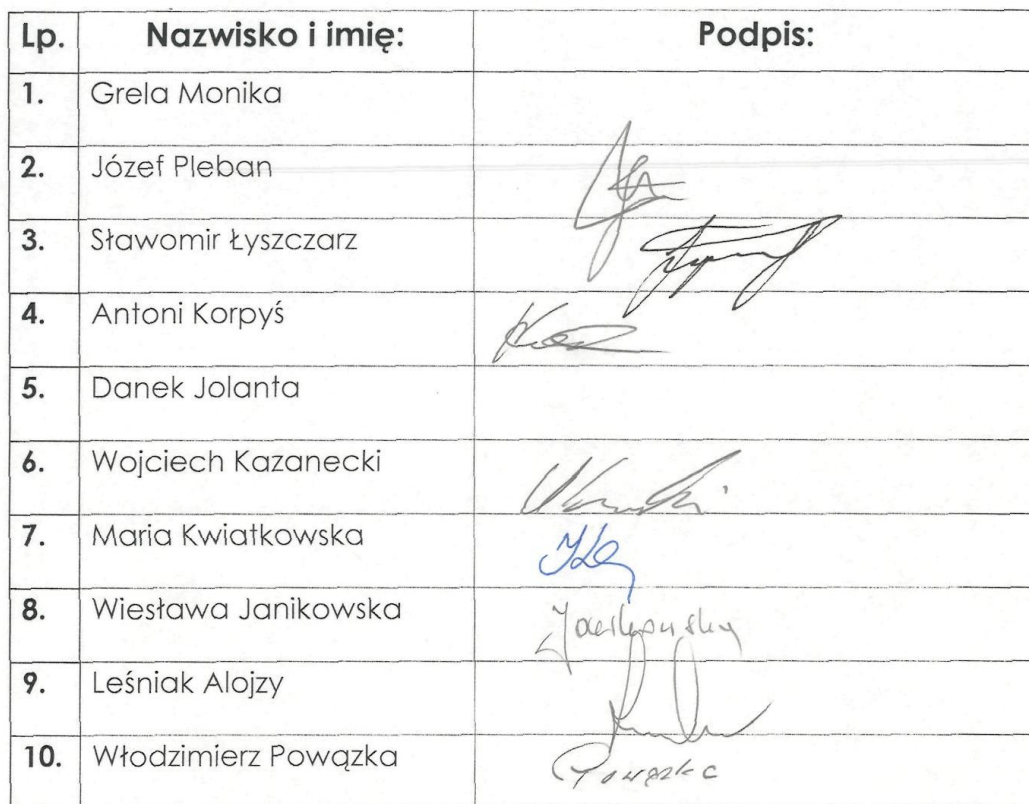 Lp. Nazwisko i imię: Podpis:
1. Grela Monika
2. Józef Pleban
3. Sławomir Łyszczarz
4. Antoni Korpyś
5. Danek Jolanta
6. Wojciech Kazanecki
7. Maria Kwiatkowska
8. Wiesława Janikowska
9. Leśniak Alojzy
10. Włodzimierz Powązka Powązka